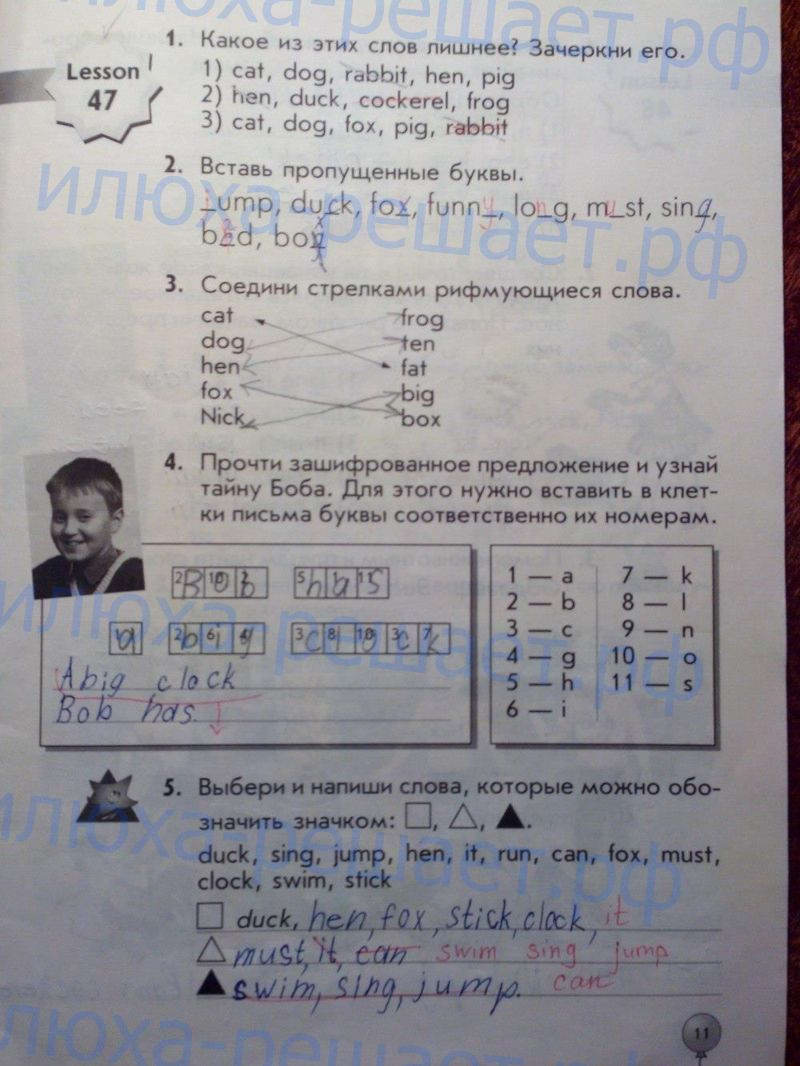 илюха-решает.рф
Lesson
47
1. Какое из этих слов лишнее? Зачеркни его.
1) cat, dog, rabbit, hen, pig
2) hen, duck, cockerel, frog
3) cat, dog, fox, pig, rabbit
2. Вставь пропущенные буквы.
илюха-решает.рф
jump, duck, fox, funny, long, must, sing,
bed, box
3. Соедини стрелками рифмующиеся слова.
cat frog
dog ten
hen fat
fox big
Nick box
4. Прочти зашифрованное предложение и узнай
тайну Боба. Для этого нужно вставить в клет-
ки письма буквы соответственно их номерам.
2 10 2 5 1 11
Bob has
1 2 6 4 3 8 10 3 7
a big clock
A big clock
Bob has.
1 — a 7 — k
2 — b 8 — l
3 — c 9 — n
4 — g 10 — o
5 — h 11 — s
6 — i
илюха-решает.рф
5. Выбери и напиши слова, которые можно обо-
значить значком: □, △, ▲.
илюха-решает.рф
duck, sing, jump, hen, it, run, can, fox, must,
clock, swim, stick
□ duck, hen, fox, stick, clock, it
△ must, it, can swim sing jump
▲ swim, sing, jump. can
илюха-решает.рф
11